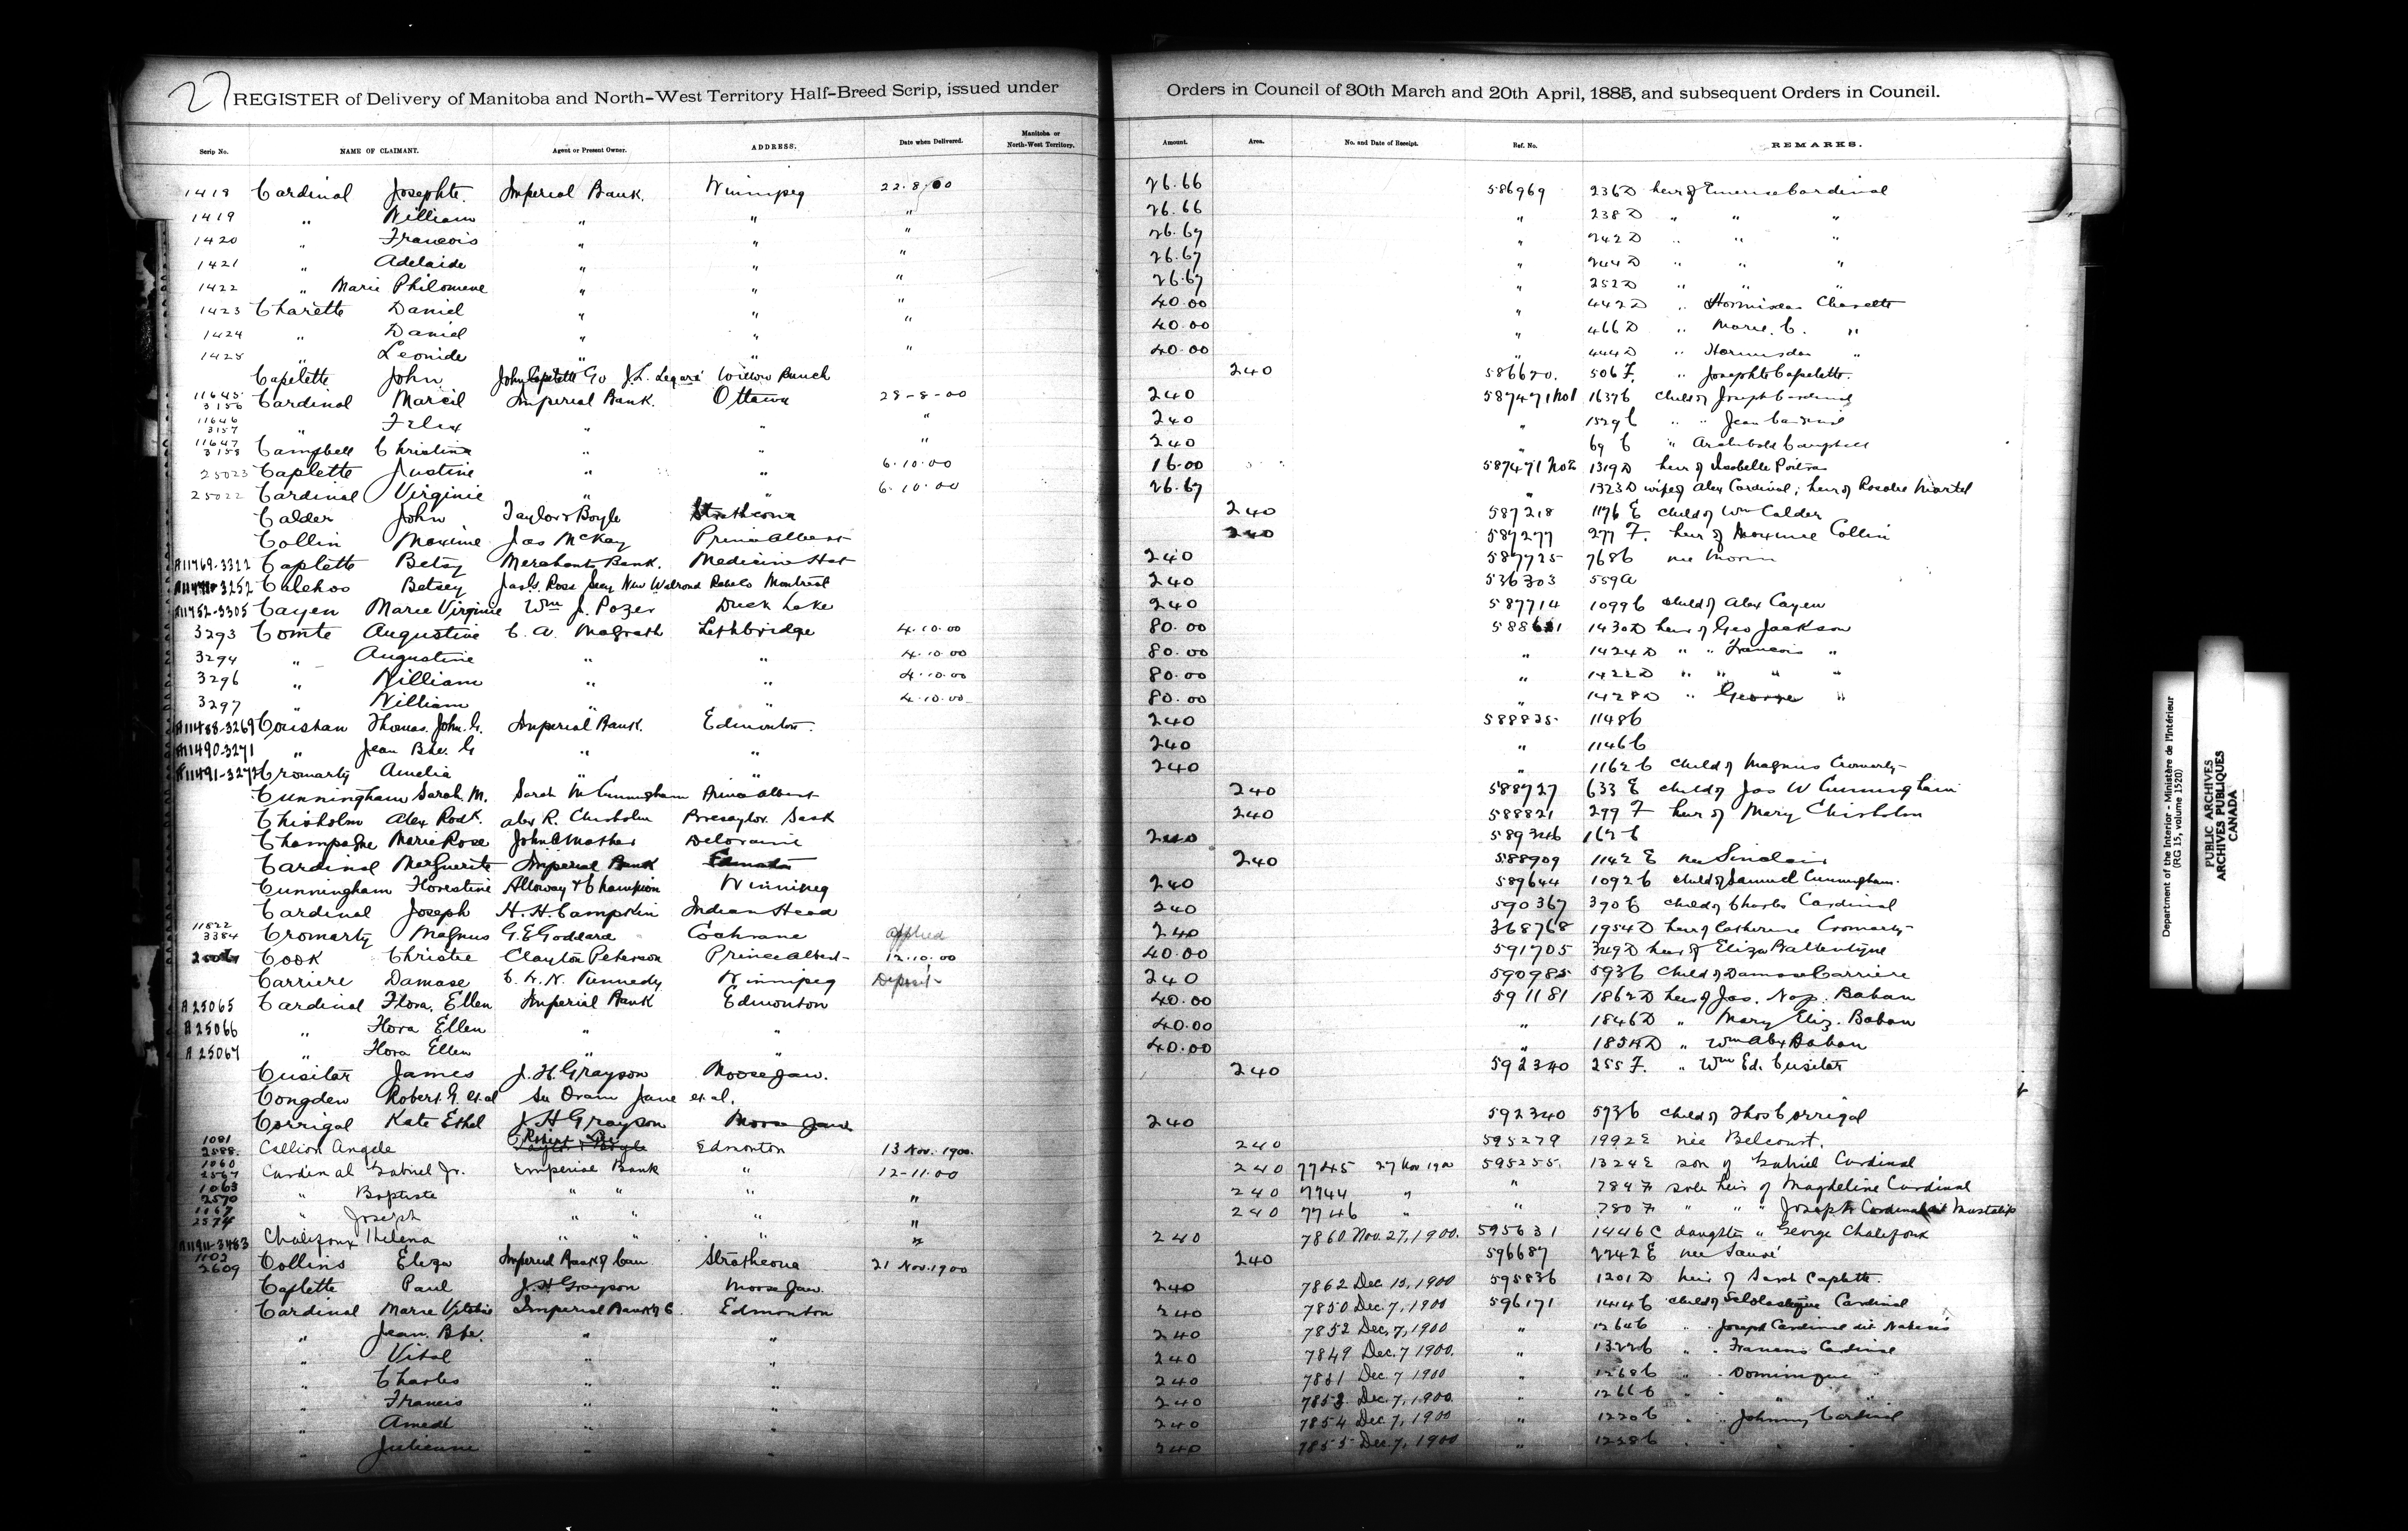 27 REGISTER of Delivery of Manitoba and North-West Territory Half-Breed Scrip, issued under Orders in Council of 30th March and 20th April, 1885, and subsequent Orders in Council.
Scrip No. NAME OF CLAIMANT. Agent or Present Owner. ADDRESS. Date when Delivered. Manitoba or North-West Territory. Amount. Area. No. and Date of Receipt. Ref. No. REMARKS.
1418 Cardinal Josephte. Imperial Bank. Winnipeg 22.8.00 26.66 586969 236D heir of Cardinal
1419 " William " " " 26.66 " 238D " " "
1420 " Francois " " " 26.67 " 242D " " "
1421 " Adelaide " " " 26.67 " 244D " " "
1422 " Marie Philomene " " " 26.67 " 252D " " "
1423 Charette Daniel " " " 40.00 " 442D " Hormisdas Charette
1424 " Daniel " " " 40.00 " 466D " Marie. C. "
1425 " Leonide " " " 40.00 " 444D " Hormisdas "
Capelette John John Capelette Go J.L. Legaré Willow Bunch 240 586620. 506 F. " Josephte Capelette.
11645 3156 Cardinal Marcil Imperial Bank. Ottawa 29-8-00 240 587471 No1 1637C child of Joseph Cardinal
11646 3157 " Felix " " " 240 " 1529C " " Jean Cardinal
11647 3158 Campbell Christina " " " 240 " 69 C " Archibald Campbell
25023 Caplette Justine " " 6.10.00 16.00 587471 No2 1319D heir of Isabelle Poitras
25022 Cardinal Virginie " " 6.10.00 26.67 " 1323D wife of Alex Cardinal; heir of Rosalie Martel
Calder John Taylor & Boyle Strathcona 240 587218 1176 E child of Wm Calder
Collin Maxime Jas McKay Prince Albert 240 587277 277 F. heir of Maxime Collin
A11769-3312 Caplette Betsy Merchants Bank. Medicine Hat 240 587725 768C nee Morin
3252 Calehos Betsey Jas. G. Ross Secy New Walrond Ranch Co Montreal 240 536303 559A
A11752-3305 Cayen Marie Virginie Wm J. Pozer Duck Lake 240 587714 1099C child of Alex Cayen
3293 Comte Augustine C. A. Magrath Lethbridge 4.10.00 80.00 1430D heir of Geo Jackson
3294 " Augustine " " 4.10.00 80.00 " 1424D " " Francois "
3296 " William " " 4.10.00 80.00 " 1422D " " " "
3297 " William " " 4.10.00 80.00 " 1428D " George "
A11488-3269 Coushan Thomas John. G. Imperial Bank. Edmonton. 240 588825. 1148C
A11490-3271 " Jean Bte. G " " 240 " 1146C
A11491-3272 Cromarty Amelia " " 240 " 1162C child of Magnus Cromarty
Cunningham Sarah M. Sarah M Cunningham Prince Albert 240 588727 633 E child of Jas W Cunningham
Chisholm Alex Rodk. Alex R. Chisholm Bresaylor. Sask 240 588821 299 F heir of Mary Chisholm
Champagne Marie Rose John A Mather Deloraine 240 589346 162C
Cardinal Marguerite Imperial Bank Edmonton 240 588909 1142 E nee Sinclair
Cunningham Florestine Alloway & Champion Winnipeg 240 589644 1092C child of Samuel Cunningham.
Cardinal Joseph H. H. Campkin Indian Head 240 590367 390C child of Charles Cardinal
11822 3384 Cromarty Magnus G. E Goddard Cochrane applied 240 368768 1954D heir of Catherine Cromarty
Cook Christie Clayton Peterson Prince Albert 12.10.00 40.00 591705 349D heir of Eliza Ballentyne
Carriere Damase Kennedy Winnipeg Deposit 240 590985 593C child of Damase Carriere
A 25065 Cardinal Flora. Ellen Imperial Bank Edmonton 40.00 591181 1862D heir of Jas. Nap. Baban
A 25066 " Flora Ellen " " 40.00 " 1846D " Mary Eliz. Baban
A 25067 " Flora Ellen " " 40.00 " 1854D " Wm Alex Baban
Cusitar James J. H. Grayson Moosejaw. 240 592340 255 F. " Wm Ed. Cusitar
Congdon Robert G. et al See Oram Jane et al.
Corrigal Kate Ethel J H Grayson Moose Jaw 240 592340 573C child of Thos Corrigal
1081 2588. Collion Angele Taylor & Boyle Edmonton 13 Nov. 1900. 240 595279 1992E née Belcourt.
1060 2567 Cardinal Gabriel Jr. Imperial Bank " 12-11-00 240 7745 27 Nov 1900 595255. 1324E son of Gabriel Cardinal
1063 2570 " Baptiste " " " " 240 7744 " " 784 F sole heir of Magdeline Cardinal
1067 2574 " Joseph " " " " 240 7746 " 780 F " " " Joseph Cardinal dit Mustatip
A11911-3483 Chalifoux Helena " " " " 240 7860 Nov. 27, 1900. 595631 1446C daughter " George Chalifoux
1102 2609 Collins Eliza Imperial Bank of Can Strathcona 21 Nov. 1900 240 596687 2242 E nee Sauvé
Caplette Paul J. H. Grayson Moose Jaw 240 7862 Dec. 13, 1900 595836 1201D heir of Sarah Caplette.
Cardinal Marie Imperial Bank of C. Edmonton 240 7850 Dec. 7, 1900 596171 1414C child of Scholastique Cardinal
" Jean. Bte. " " 240 7852 Dec. 7, 1900 " 1264C " " Joseph Cardinal dit
" Vital " " 240 7849 Dec. 7 1900. " " " Francois Cardinal
" Charles " " 240 7851 Dec. 7 1900 " 1268C " " Dominique "
" Francis " " 240 7853 Dec. 7, 1900. 1266C " " "
" Amede " " 240 7854 Dec. 7, 1900 " 1220C " " Johnny Cardinal
" Julienne " " 240 7855 Dec. 7, 1900 " 1258C " " "
Department of the Interior - Ministère de l'Intérieur
(RG 15, volume 1520)
PUBLIC ARCHIVES
ARCHIVES PUBLIQUES
CANADA